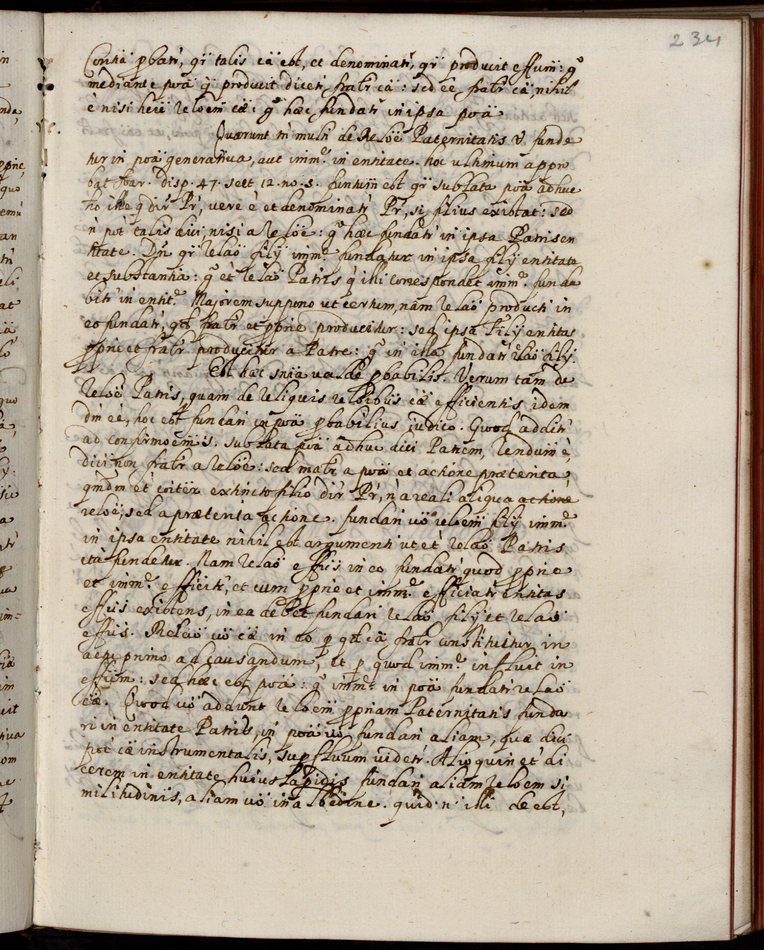 234
Contra pbatr, qr talis cä est, et denominatr, qr producit effum: gº
mediante poä qr producit dicetr fralr cä: sed ee fralr cä, nihil
è nisi here reloem cæ: gº hæc fundatr in ipsa poä
Quærunt tn multi de Reloe Paternitatis v. funde
tur in poä generativa, aut imme in entitate. hoc ultimum appro
bat Suar. disp. 47. sect 12. no. 5. funtum est qr sublata poä adhuc
ho ille q dir Pr, vere e et denominatr Pr, si filius existat: sed
n pot talis dici nisi a reloe: gº hæc fundatr in ipsa Patris en
titate. Dm qr relaö filÿ imme fundatur in ipsa filÿ entitate
et substantia: gº et relaö Patris q illi correspondet imme funda
bitr in entite. Majorem suppono ut certum, nam relaö producti in
eo fundatr, qd fralr et pprie producitur: sed ipsa filÿ entitas
pprie et fralr producitur a Patre: gº in illa fundatr relaö filÿ
Est hæc sniä valde pbabilis. Verum tam de
Reloe Patris, quam de reliquis reloibus cæ efficientis idem
dm eè, hoc est fundari in poä pbabilius judico. Quod additr
ad confirmoem is. sublata poä adhuc dici Patrem, rendum è,
dici non fralr a reloe: sed malr a poä et actione præterita,
qmdm et coiter extincto filio dir Pr, n a reali aliqua actione
reloe, sed a præterita actione. fundari vö reloem filÿ imme
in ipsa entitate nihil est argumenti ut et relaö Patris
ita fundetur. Nam relaö effus in eo fundatr quod pprie
et imme efficitr, et cum pprie et imme efficiatr entitas
effus existens, in ea debet fundari relaö filÿ et relaö
effus. Relaö vö cæ in eo p qd cä fralr constituitur in
actu primo ad causandum, et p quod imme influit in
effum: sed hæc est poä: gº imme in poä fundatr relaö
cæ. Quod vö addunt reloem ppriam Paternitatis funda
ri in entitate Patris, in poä vö fundari aliam, quæ dici
pot cä instrumentalis, supfluum videtr. Alioquin et di
cerem in entitate huius lapidis fundari aliam reloem si
militudinis, aliam vö in albedine. quid n illi deest,